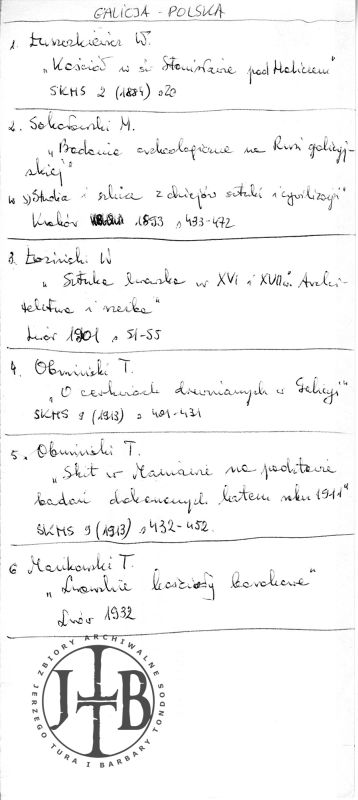 GALICJA - POLSKA
1. Łuszczkiewicz W.
„Kościół w św Stanisławie pod Haliczem"
SKHS 2 (1884) s 20
2. Sokołowski M.
„Badania archeologiczne na Rusi galicyj-
skiej"
w „Studia i szkice z dziejów sztuki i cywilizacji"
Kraków 1893 s 493-472
3. Łoziński W
„Sztuka lwowska w XVI i XVII w. Archi-
tektura i rzeźba"
Lwów 1901 s 51-55
4. Obmiński T.
„O cerkwiach drewnianych w Galicji"
SKHS 9 (1913) s 401-431
5. Obmiński T.
„Skit w Maniawie na podstawie
badań dokonanych latem roku 1911"
SKHS 9 (1913) s 432-452.
6 Mańkowski T.
„Lwowskie kościoły barokowe"
Lwów 1932
ZBIORY ARCHIWALNE
JERZEGO TURA I BARBARY TONDOS
JTB